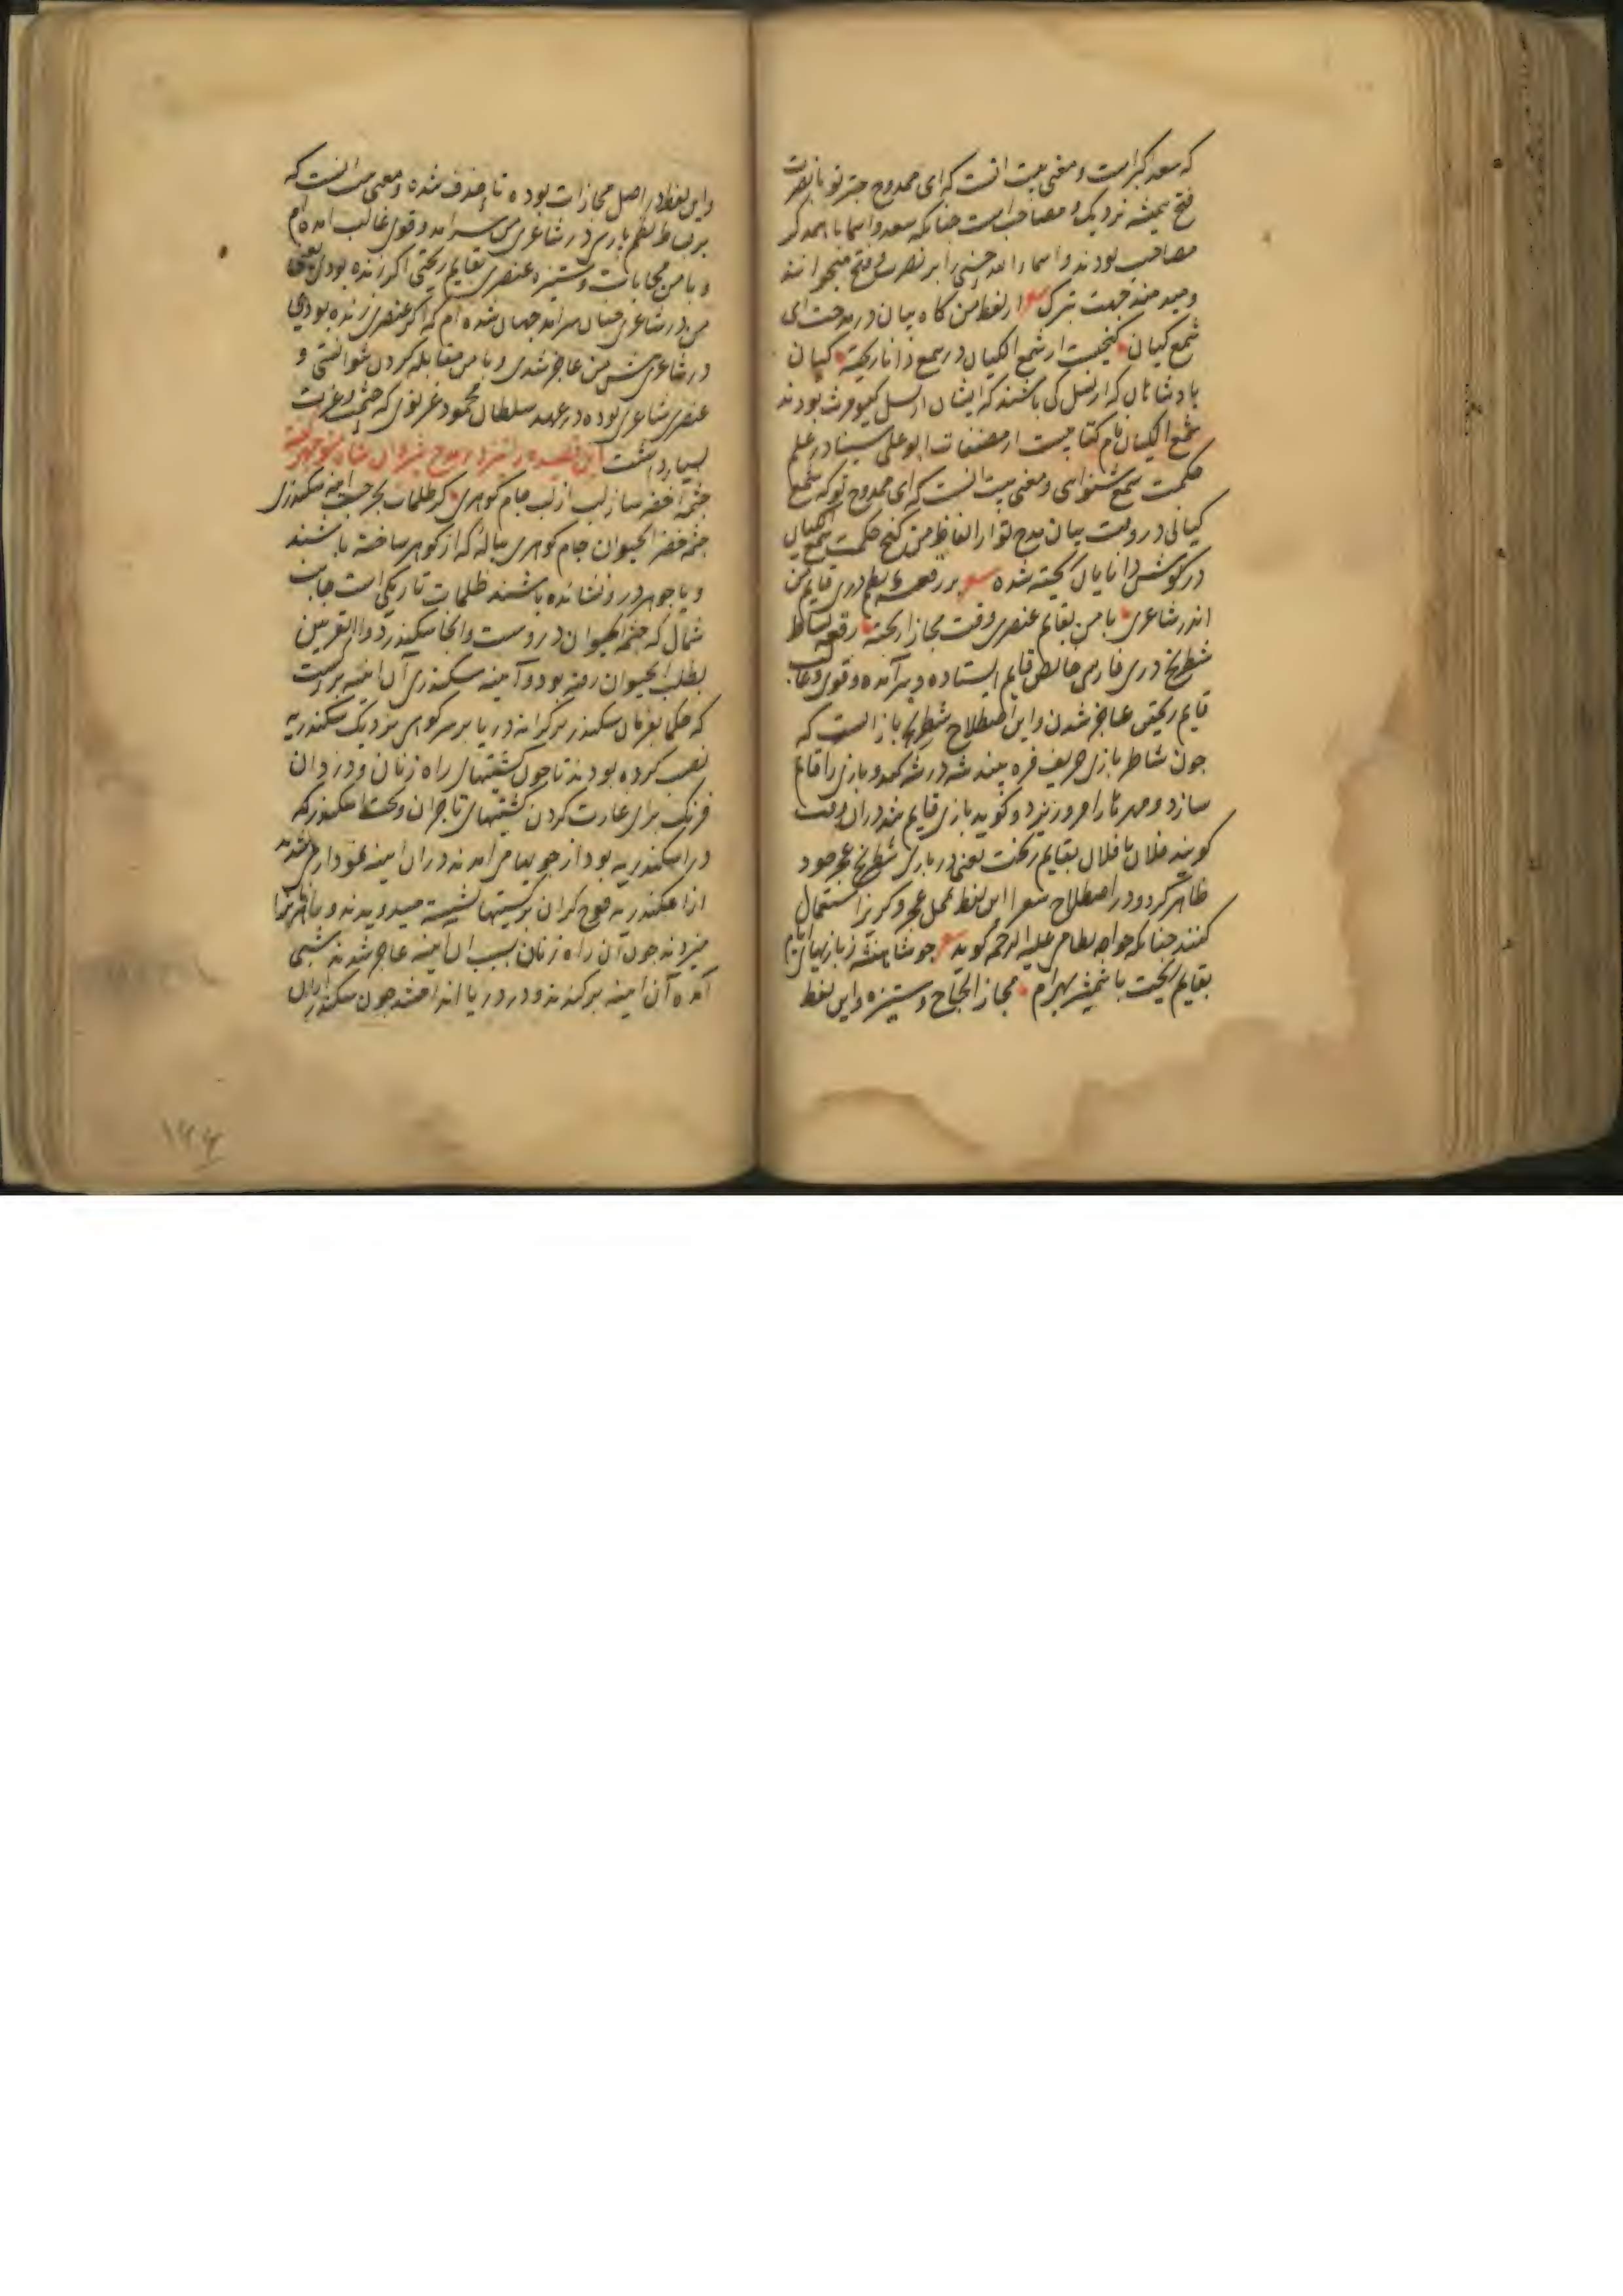 که سعد اکبر است و معنی بیت انست که ای ممدوح چتر تو با نصرت
فتح همیشه نزدیک و مصاحب است چنانکه سعد و اسما با همدگر
مصاحب بودند و اسما را الله چتر را بر نصرت و فتح میخوانند
و میدمند جهت تبرک از لفظ من گاه بیان در مدحت ای
شمع کیان گنجیست از سمع الکیان در سمع دانا ریخته کیان
پادشاهان که از نسل کی باشند که ایشان از نسل کیومرث بودند
سمع الکیان نام کتابیست از مصنفات ابو علی سینا در علم
حکمت سمع شنوای و معنی بیت انست که ای ممدوح تو که شمع
کیانی در وقت بیان مدح تو از الفاظ من گنج حکمت سمع الکیان
در گوش دانایان ریخته شده بر رقعه نظم دری قایم من
اندر شاعری با من بقایم عنصری وقت مجازا ریخته رقعه بساط
شطرنج دری فارسی خالص قایم ایستاده و سرآمده و قوی و غالب
قایم ریختن عاجز شدن و این اصطلاح شطرنج بازانست که
چون شاطر بازی حریف فره بیند شه در شه کند و بازی را قایم
سازد و مهرها را فرو ریزد و گوید بازی قایم شد در ان وقت
گویند فلان با فلان بقایم ریخت یعنی در بازی شطرنج عجز خود
ظاهر کرد و در اصطلاح شعرا این لفظ بمحل عجز و گریز استعمال
کنند چنانکه خواجه نظامی علیه الرحمه گوید چو شاهنشه ز بازیهای ایام
بقایم ریخت با شمشیر بهرام مجازا لجاج و ستیزه و این لفظ
و این لفظ در اصل مجازات بوده تا حذف شده و معنی انست که
بر بساط نظم پارسی در شاعری من سرآمد و قوی غالب آمده ام
و با من مجابات و ستیزه عنصری بقایم ریختی اگر زنده بودی یعنی
من در شاعری چنان سرآمد جهان شده ام که اگر عنصری زنده بودی
در شاعری پیش من عاجز شدی و با من مقابله کردن نتوانستی و
عنصری شاعری بوده در عهد سلطان محمود غزنوی که حشمت و عزت
بسیار داشت این قصیده را نیز در مدح شاه منوچهر گفته
چشمه خضر ساز لب از لب جام گوهری کز ظلمات بحر جست آینه سکندری
چشمه خضر الحیوان جام گوهری پیاله که از گوهر ساخته باشند
و یا جوهر درو نشانده باشند ظلمات تاریکی است جانب
شمال که چشمه الحیوان دروست و آنجا سکندر ذوالقرنین
بطلب الحیوان رفته بود و آینه سکندری آن آینه بر است
که حکما بفرمان سکندر بر کرانه دریا بر سر کوهی نزدیک سکندریه
نصب کرده بودند تا چون کشتیهای راه زنان و دزدان
فرنگ برای غارت کردن کشتیهای تاجران و سکندر که
در اسکندریه بود از می آمدند در ان آینه نمودار می شدند
از اسکندریه فوج گران بر کشتیها نشسته میدویدند و
میزدند چون آن راه زنان بسبب آن آینه عاجز شدند شبی
آمده آن آینه برکندند و در دریا انداختند چون سکندر از ان
۱۴۴